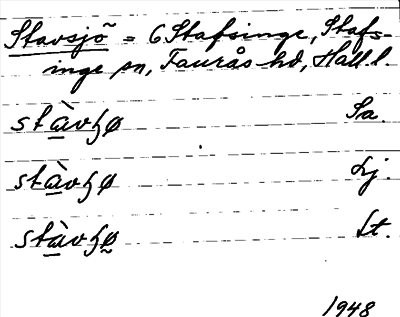 Stavsjö = 6 Stafsinge, Stafs-
inge sn, Faurås hd, Hall. l.
stàvɧø Sa.
stàvɧø Lj.
stàvɧø Lt.
1948